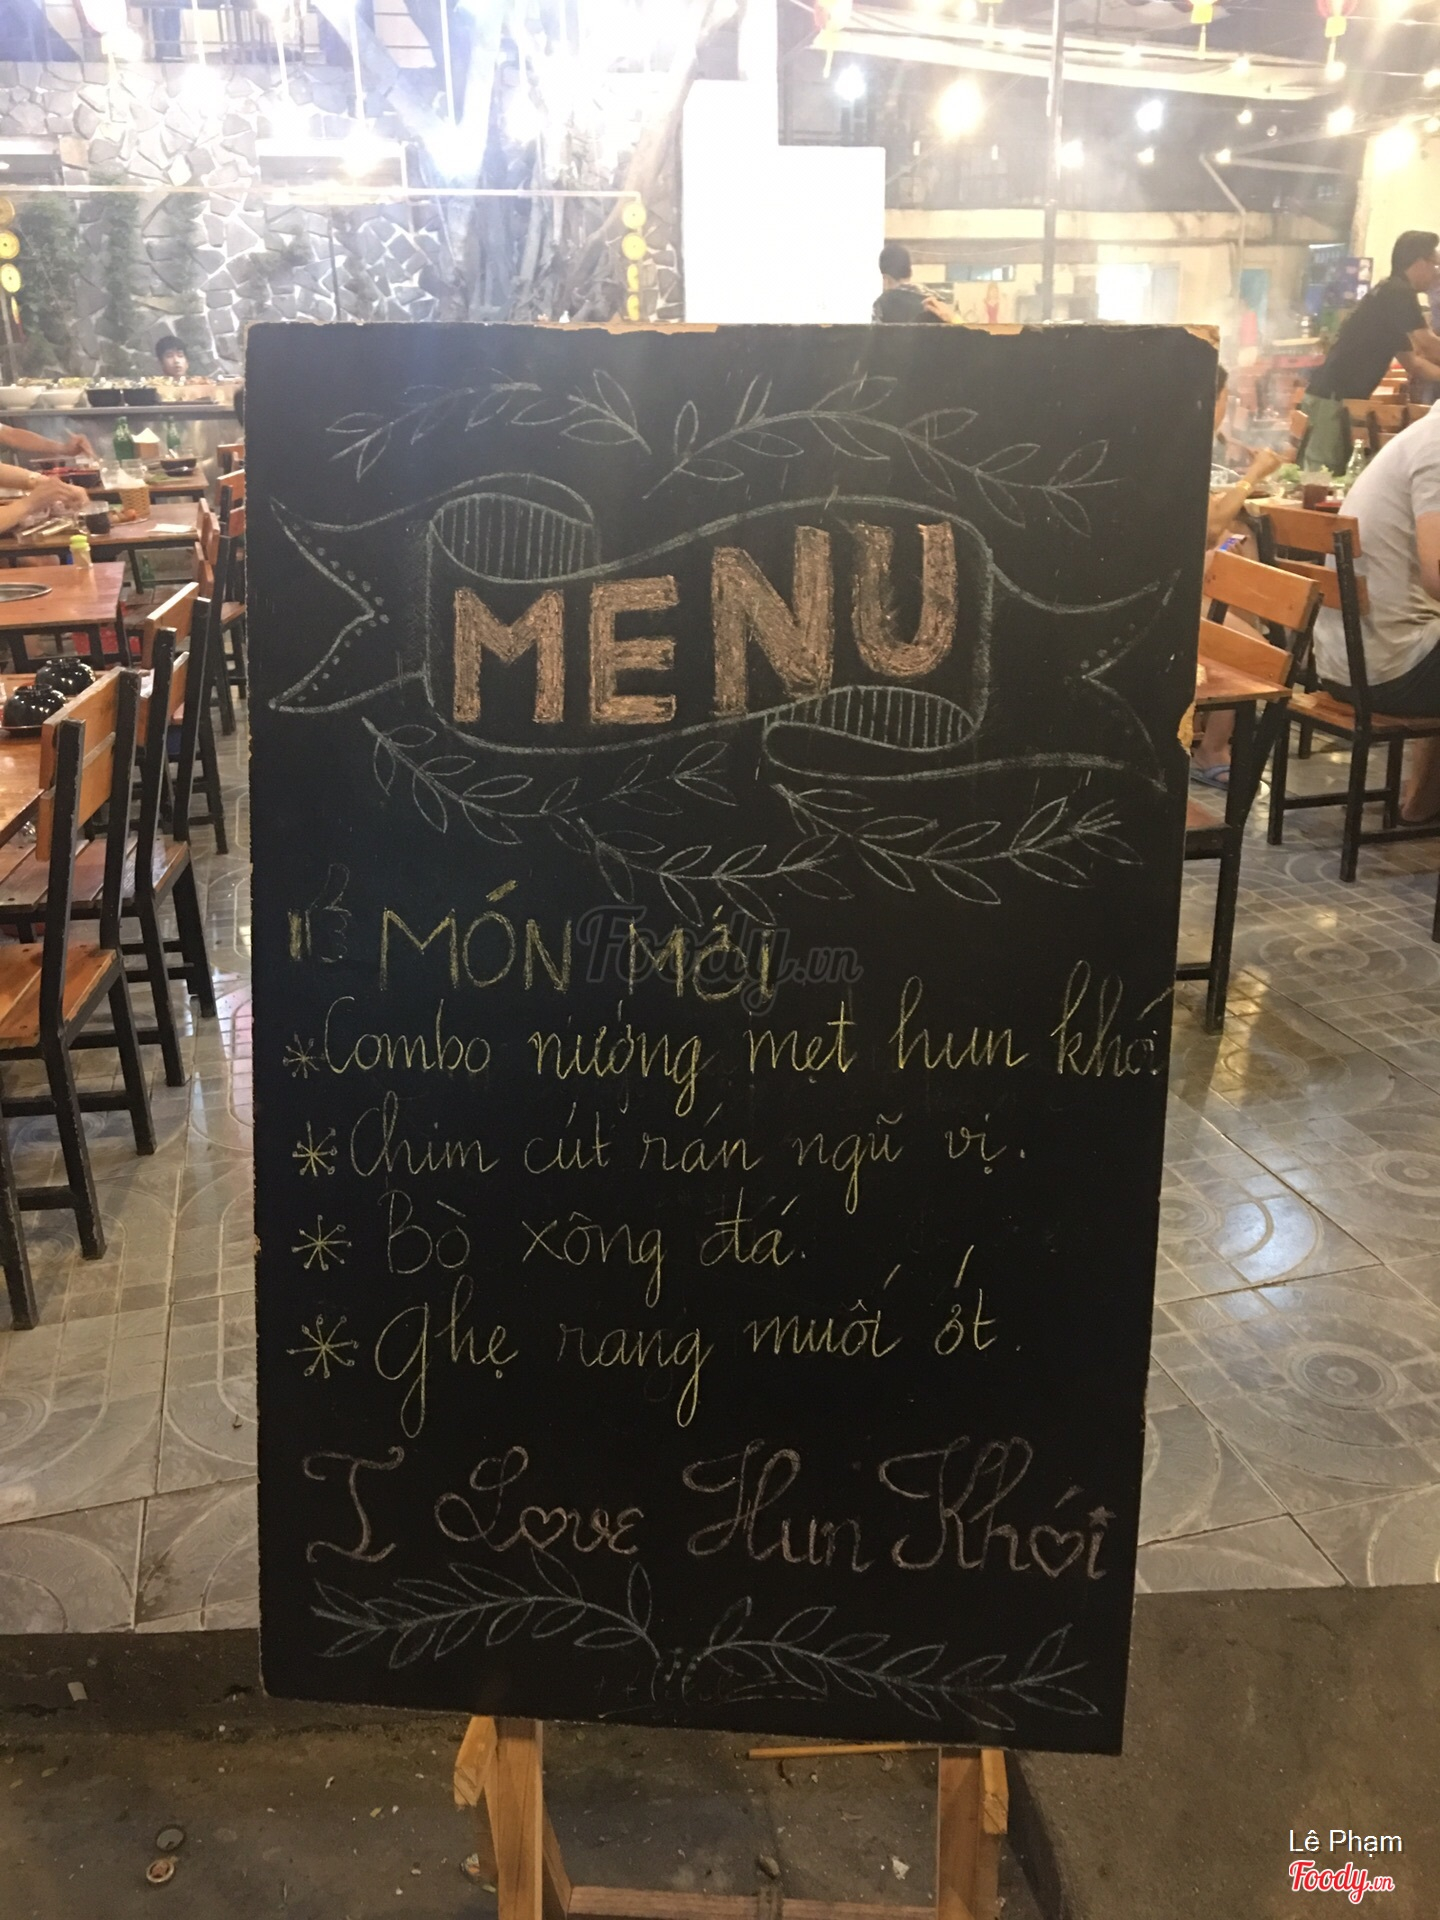 MENU
MÓN MỚI
Foody.vn
*Combo nướng mẹt hun khói
*Chim cút rán ngũ vị.
* Bò xông đá.
* Ghẹ rang muối ớt.
I Love Hun Khói
Lê Phạm
Foody.vn